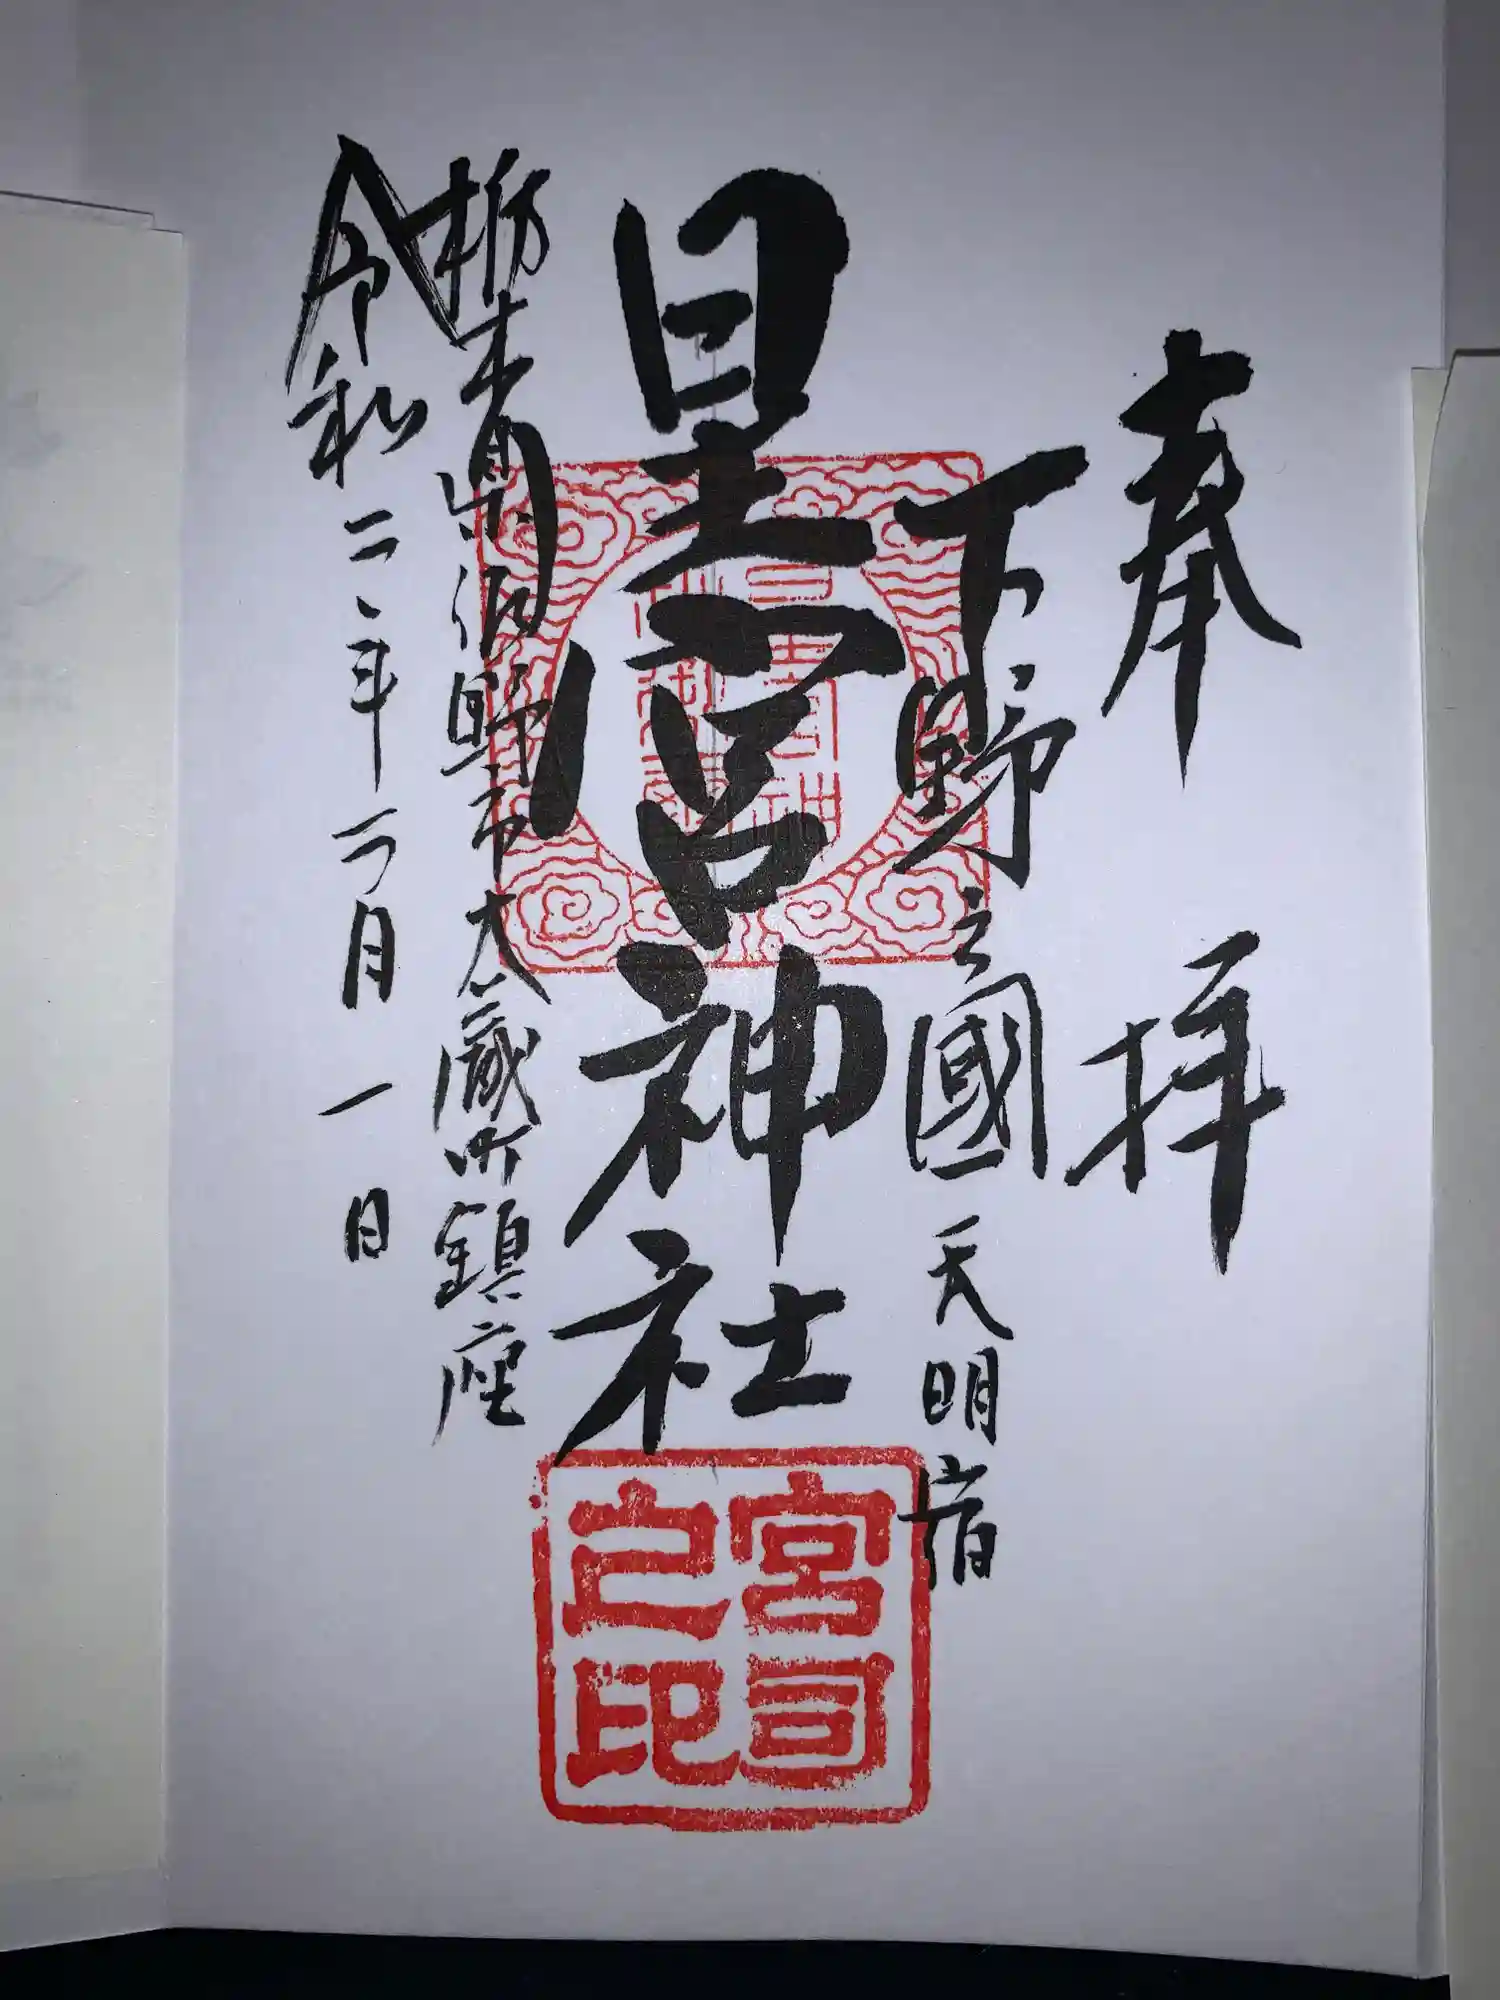 奉拝
下野之國 天明宿
星宮神社
栃木県佐野市大蔵町鎮座
令和二年一月一日
宮司
之印